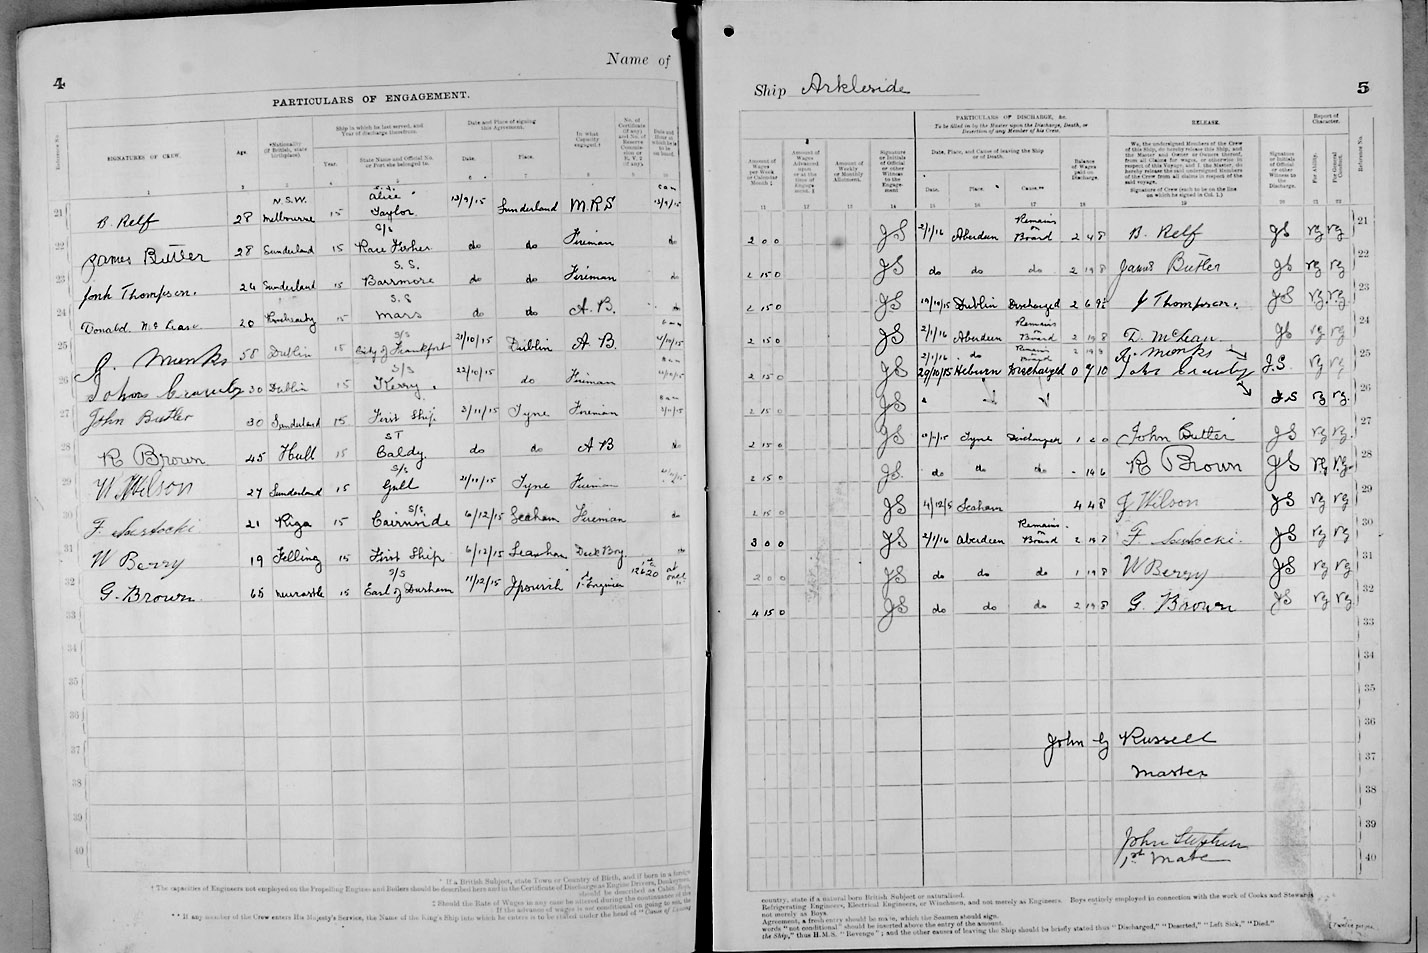 4
Name of
PARTICULARS OF ENGAGEMENT.
SIGNATURES OF CREW.
Age.
*Nationality (if British, state birthplace).
Ship in which he last served, and Year of discharge therefrom.
Year.
State Name and Official No. or Port she belonged to.
Date and Place of signing this Agreement.
Date.
Place.
In what Capacity engaged.†
21 B. Relf 28 N.S.W. Melbourne 15 Alice Taylor 13/9/15 Sunderland M.R.S 13/9/15
22 James Butler 28 Sunderland 15 S/S Rare Fisher do do Fireman do
23 Jonh Thompson. 24 Sunderland 15 S.S. Barrmore do do Fireman do
24 Donald McLean 20 15 S.S Mars do do A.B.
25 J. Monks 58 Dublin 15 S/S City of Frankfort 21/10/15 Dublin A.B.
26 John 30 Dublin 15 S/S Kerry. 22/10/15 do Fireman
27 John Butler 30 Sunderland 15 First Ship 3/11/15 Tyne Fireman
28 R Brown 45 Hull 15 ST Caldy do do A B do
29 W Wilson 27 Sunderland 15 S/S Gull Tyne Fireman
30 F. 21 Riga 15 S/S 6/12/15 Seaham Fireman do
31 W Berry 19 Felling 15 First Ship 6/12/15 Seaham Deck Boy do
32 G. Brown 65 Newcastle 15 S/S Earl of Durham 11/12/15 Ipswich 1st Engineer 12620 at once
33
34
35
36
37
38
39
40
* If a British Subject, state Town or Country of Birth, and if born in a foreign
† The capacities of Engineers not employed on the Propelling Engines and Boilers should be described here and in the Certificate of Discharge as Engine Drivers, Donkeymen,
should be described as Cabin Boys,
‡ Should the Rate of Wages in any case be altered during the continuance of the
If the advance of wages is not conditional on going to sea, the
** If any member of the Crew enters His Majesty's Service, the Name of the King's Ship into which he enters is to be stated under the head of "Cause of Leaving
Ship Arkleside
5
PARTICULARS OF DISCHARGE, &c.
To be filled in by the Master upon the Discharge, Death, or Desertion of any Member of his Crew.
RELEASE.
Report of Character.
Amount of Wages per Week or Calendar Month ‡
Amount of Wages Advanced upon or at the time of Engagement. ‡
Amount of Weekly or Monthly Allotment.
Signature or Initials of Official or other Witness to the Engagement
Date, Place, and Cause of leaving the Ship or of Death.
Date.
Place.
Cause.**
Balance of Wages paid on Discharge.
We, the undersigned Members of the Crew of this Ship, do hereby release this Ship, and the Master and Owner or Owners thereof, from all Claims for wages, or otherwise in respect of this Voyage, and I, the Master, do hereby release the said undersigned Members of the Crew from all claims in respect of the said voyage.
Signature of Crew (each to be on the line on which he signed in Col. 1.)
Signature or Initials of Official or other Witness to the Discharge.
For Ability.
For General Conduct.
Reference No.
11 12 13 14 15 16 17 18 19 20 21 22
2 0 0 JS 2/1/16 Aberdeen Remains on Board 2 4 8 B. Relf JS VG VG 21
2 15 0 JS do do do 2 19 8 James Butler JS VG VG 22
2 15 0 JS 19/10/15 Dublin Discharged 2 6 J Thompson. JS VG VG 23
2 15 0 JS 2/1/16 Aberdeen Remains on Board 2 19 8 D. McLean JS VG VG 24
2 15 0 JS 2/1/16 do Remains on Board J. Monks J.S. VG VG 25
29/10/15 Heburn Discharged 0 9 10 John
2 15 0 JS JS VG VG. 26
2 15 0 JS Tyne Discharged John Butler JS VG VG. 27
2 15 0 JS. do do do - 14 6 R Brown JS VG VG. 28
2 15 0 JS 4/12/5 Seaham 4 4 8 J Wilson JS VG VG 29
3 0 0 JS 2/1/16 Aberdeen Remains on Board 2 19 8 F. JS VG VG 30
2 0 0 JS do do do 1 19 8 W Berry JS VG VG 31
4 15 0 JS do do do 2 19 8 G. Brown JS VG VG. 32
33
34
35
36
John G Russell
37
Master
38
39
John Stephen
1st Mate
40
country, state if a natural born British Subject or naturalised.
Refrigerating Engineers, Electrical Engineers, or Winchmen, and not merely as Engineers. Boys entirely employed in connection with the work of Cooks and Stewards
not merely as Boys.
Agreement, a fresh entry should be made, which the Seamen should sign.
words "not conditional" should be inserted above the entry of the amount.
the Ship," thus H.M.S. "Revenge"; and the other causes of leaving the Ship should be briefly stated thus "Discharged," "Deserted," "Left Sick," "Died."